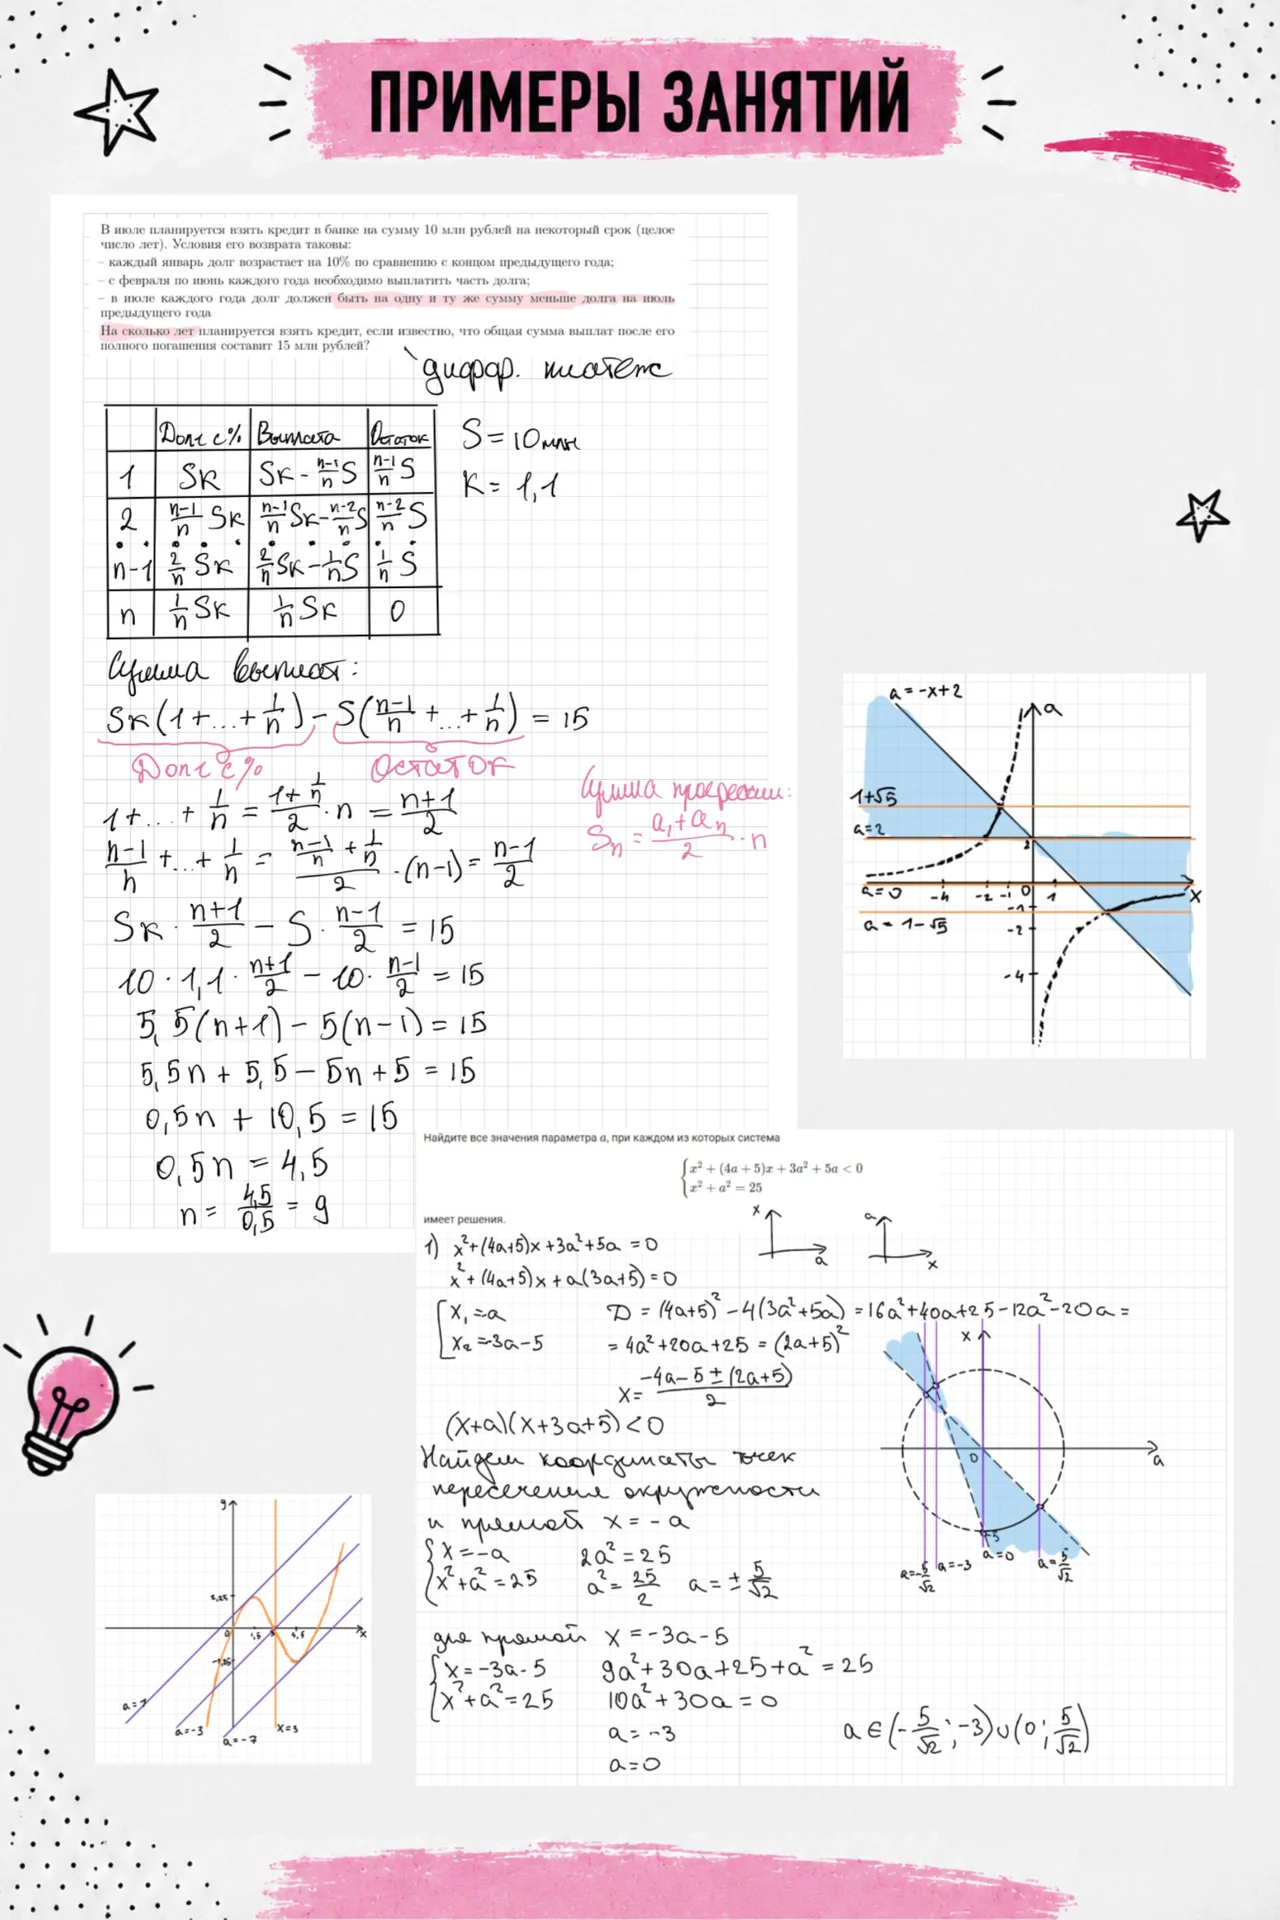 ПРИМЕРЫ ЗАНЯТИЙ
В июле планируется взять кредит в банке на сумму 10 млн рублей на некоторый срок (целое
число лет). Условия его возврата таковы:
– каждый январь долг возрастает на 10% по сравнению с концом предыдущего года;
– с февраля по июнь каждого года необходимо выплатить часть долга;
– в июле каждого года долг должен быть на одну и ту же сумму меньше долга на июль
предыдущего года
На сколько лет планируется взять кредит, если известно, что общая сумма выплат после его
полного погашения составит 15 млн рублей?
дифф. платеж
Долг с % Выплата Остаток
1 Sк Sк - n-1/n S n-1/n S
2 n-1/n Sк n-1/n Sк - n-2/n S n-2/n S
n-1 2/n Sк 2/n Sк - 1/n S 1/n S
n 1/n Sк 1/n Sк 0
S = 10 млн
К = 1,1
Сумма выплат:
Sк(1+...+1/n) - S(n-1/n +...+ 1/n) = 15
Долг с % Остаток
Сумма прогрессии:
Sn = (a₁+an)/2 · n
1+...+1/n = (1+1/n)/2 · n = (n+1)/2
n-1/n +...+ 1/n = (n-1/n + 1/n)/2 · (n-1) = (n-1)/2
Sк · (n+1)/2 - S · (n-1)/2 = 15
10 · 1,1 · (n+1)/2 - 10 · (n-1)/2 = 15
5,5(n+1) - 5(n-1) = 15
5,5n + 5,5 - 5n + 5 = 15
0,5n + 10,5 = 15
0,5n = 4,5
n = 4,5/0,5 = 9
a = -x+2
a
1+√5
a=2
2
a=0 -4 -2 -1 0 1 x
-1
a = 1-√5
-2
-4
Найдите все значения параметра a, при каждом из которых система
x² + (4a + 5)x + 3a² + 5a < 0
x² + a² = 25
имеет решения.
x a
a x
1) x²+(4a+5)x+3a²+5a = 0
x²+(4a+5)x+a(3a+5) = 0
x₁ = -a
x₂ = -3a-5
D = (4a+5)² - 4(3a²+5a) = 16a²+40a+25-12a²-20a =
= 4a²+20a+25 = (2a+5)²
x = (-4a-5±(2a+5))/2
(x+a)(x+3a+5) < 0
Найдем координаты точек
пересечения окружности
и прямой x = -a
x = -a
x²+a² = 25
2a² = 25
a² = 25/2 a = ± 5/√2
x
0 a
-5
a=-5/√2 a=-3 a=0 a=5/√2
для прямой x = -3a-5
x = -3a-5
x²+a² = 25
9a²+30a+25+a² = 25
10a²+30a = 0
a = -3
a = 0
a ∈ (-5/√2; -3) ∪ (0; 5/√2)
y
0 1,5 3 4,5 x
a=-3 a=-7 x=3